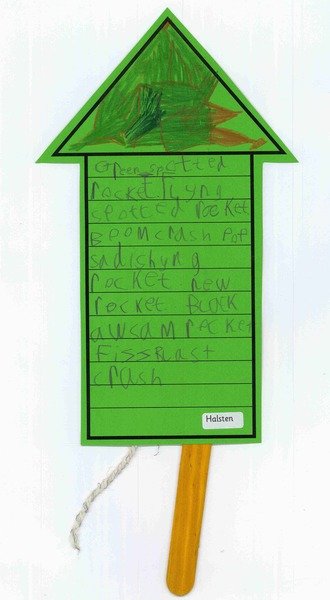 Green spotted
rocket flyyng
spotted rocket
Boom crash pop
sadishyng
rocket new
rocket Block
awsam rocket
fissBlast
crash
Halsten